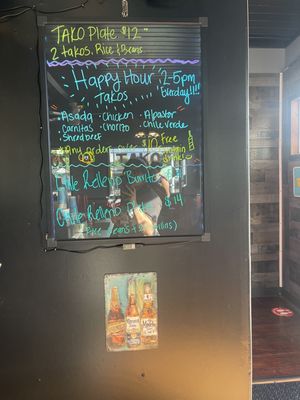 TAKO Plate $12
2 takos, Rice & Beans
Happy Hour 2-5pm
Takos Everday!!!!
Asada · Chicken · Albastor
Carnitas · Chorzo · chile verde
Shred beef
Any order over $10 Free
Chile Relleno Burrito
Chile Relleno $14